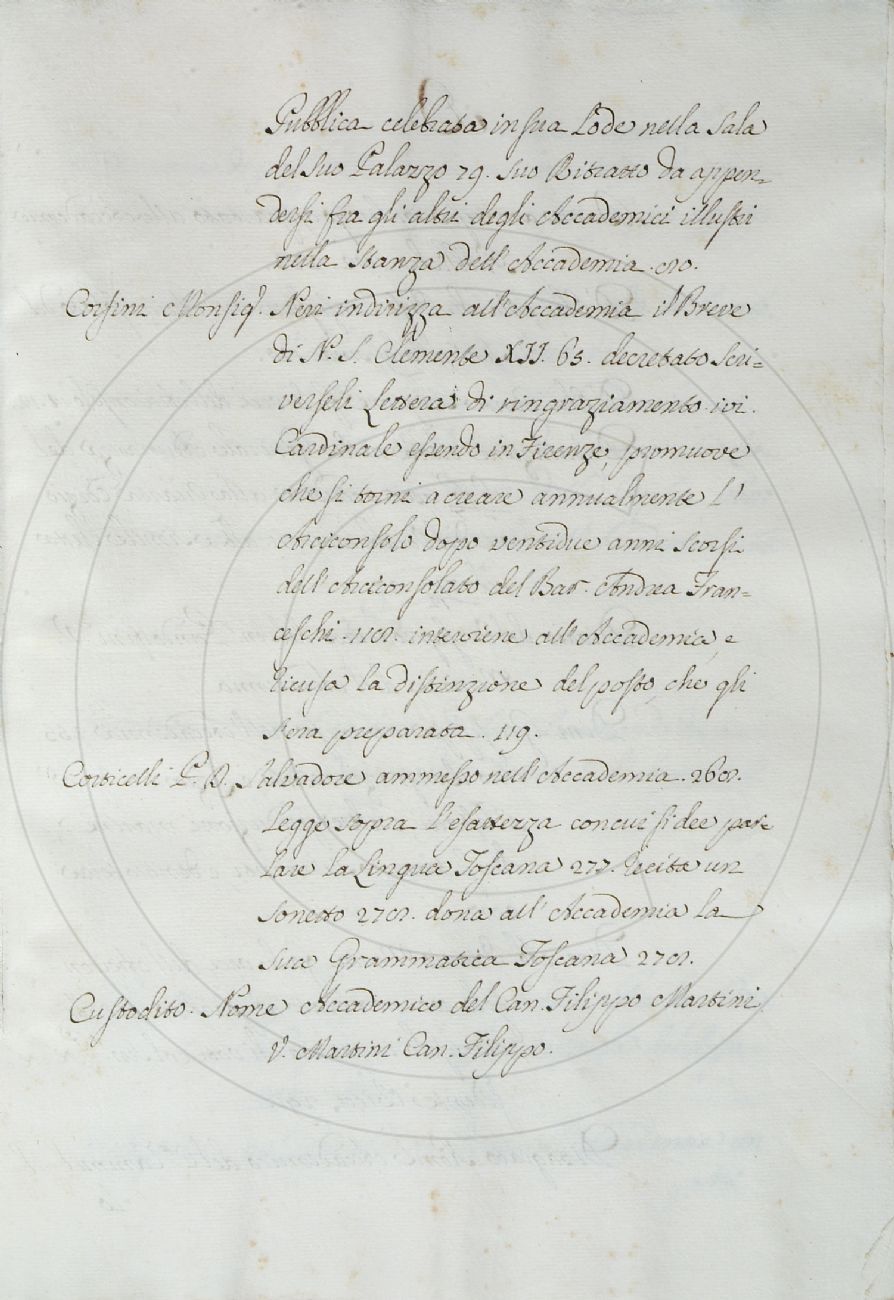 Pubblica celebrata in sua Lode nella Sala
del suo Palazzo 79. suo Ritratto da appen-
dersi fra gli altri degli Accademici illustri
nella Stanza dell'Accademia
Corsini Monsig.r Neri indirizza all'Accademia il Breve
di N. S. Clemente XII. 65. decretato scri-
verseli Lettera di ringraziamento ivi.
Cardinale essendo in Firenze, promuove
che si torni a creare annualmente l'
Arciconsolo dopo ventidue anni scorsi
dell'Arciconsolato del Bar. Andrea Fran-
ceschi interviene all'Accademia, e
ricusa la distinzione del posto, che gli
s'era preparata. 119.
Corticelli P. D. Salvadore ammesso nell'Accademia
Legge sopra l'esattezza con cui si dee par-
lare la Lingua Toscana recita un
Sonetto dona all'Accademia la
sua Grammatica Toscana
Custodito. Nome Accademico del Can. Filippo Martini
V. Martini Can. Filippo.